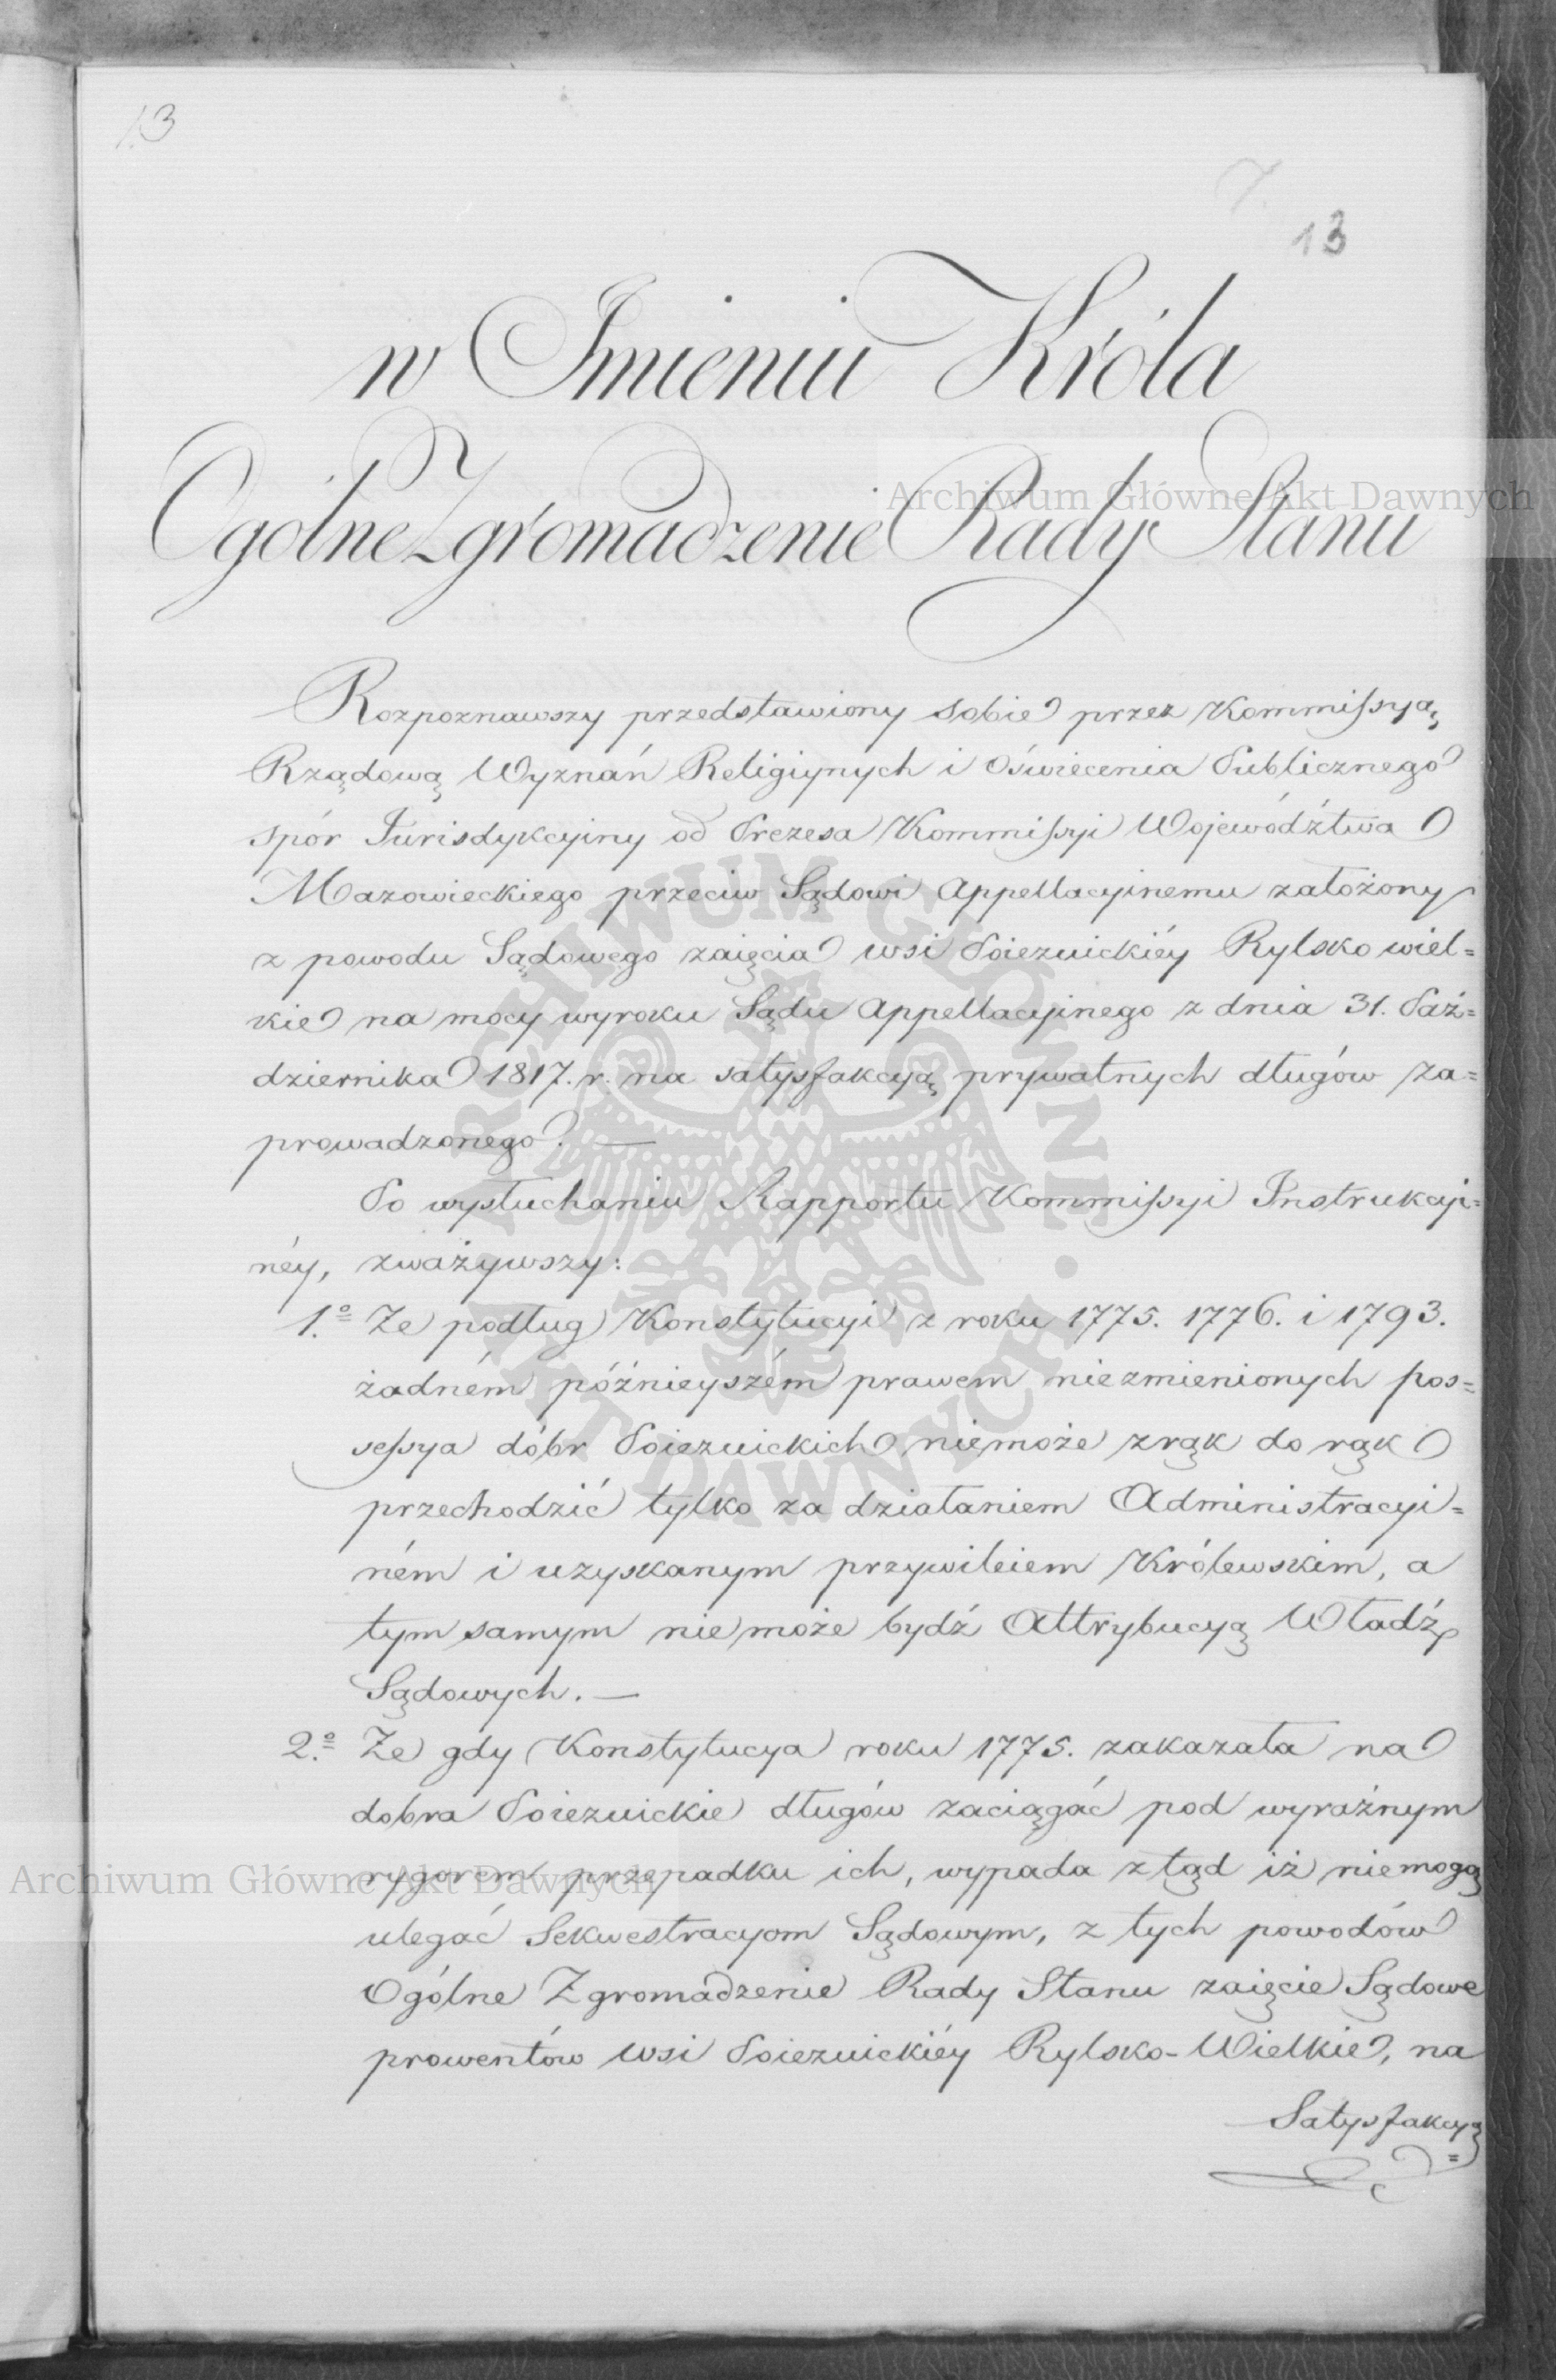 13
7.
13
w Imieniu Króla
Ogólne Zgromadzenie Rady Stanu
Rozpoznawszy przedstawiony sobie przez Kommissyą
Rządową Wyznań Religiynych i Oświecenia Publicznego
spór Jurisdykcyiny od Prezesa Kommissyi Województwa
Mazowieckiego przeciw Sądowi Appellacyinemu założony
z powodu Sądowego zaięcia wsi Poiezuickiéy Rylsko wiel=
kie na mocy wyroku Sądu Appellacyinego z dnia 31. Paź=
dziernika 1817. r. na satysfakcyą prywatnych długów za=
prowadzonego. —
Po wysłuchaniu Rapportu Kommissyi Instrukcyi=
néy, zważywszy:
1.º Że podług Konstytucyi z roku 1775. 1776. i 1793.
żadném późnieyszém prawem niezmienionych pos=
sessya dóbr Poiezuickich niemoże z rąk do rąk
przechodzić tylko za działaniem Administracyi=
ném i uzyskanym przywileiem Królewskim, a
tym samym nie może bydź Attrybucyą Władz
Sądowych. —
2.º Że gdy Konstytucya roku 1775. zakazała na
dobra Poiezuickie długów zaciągać pod wyraźnym
rygorem przepadku ich, wypada ztąd iż niemogą
ulegać Sekwestracyom Sądowym, z tych powodów
Ogólne Zgromadzenie Rady Stanu zaięcie Sądowe
prowentów wsi Poiezuickiéy Rylsko-Wielkie, na
Satysfakcyą
=
Archiwum Główne Akt Dawnych
Archiwum Główne Akt Dawnych
ARCHIWUM GŁÓWNE AKT DAWNYCH